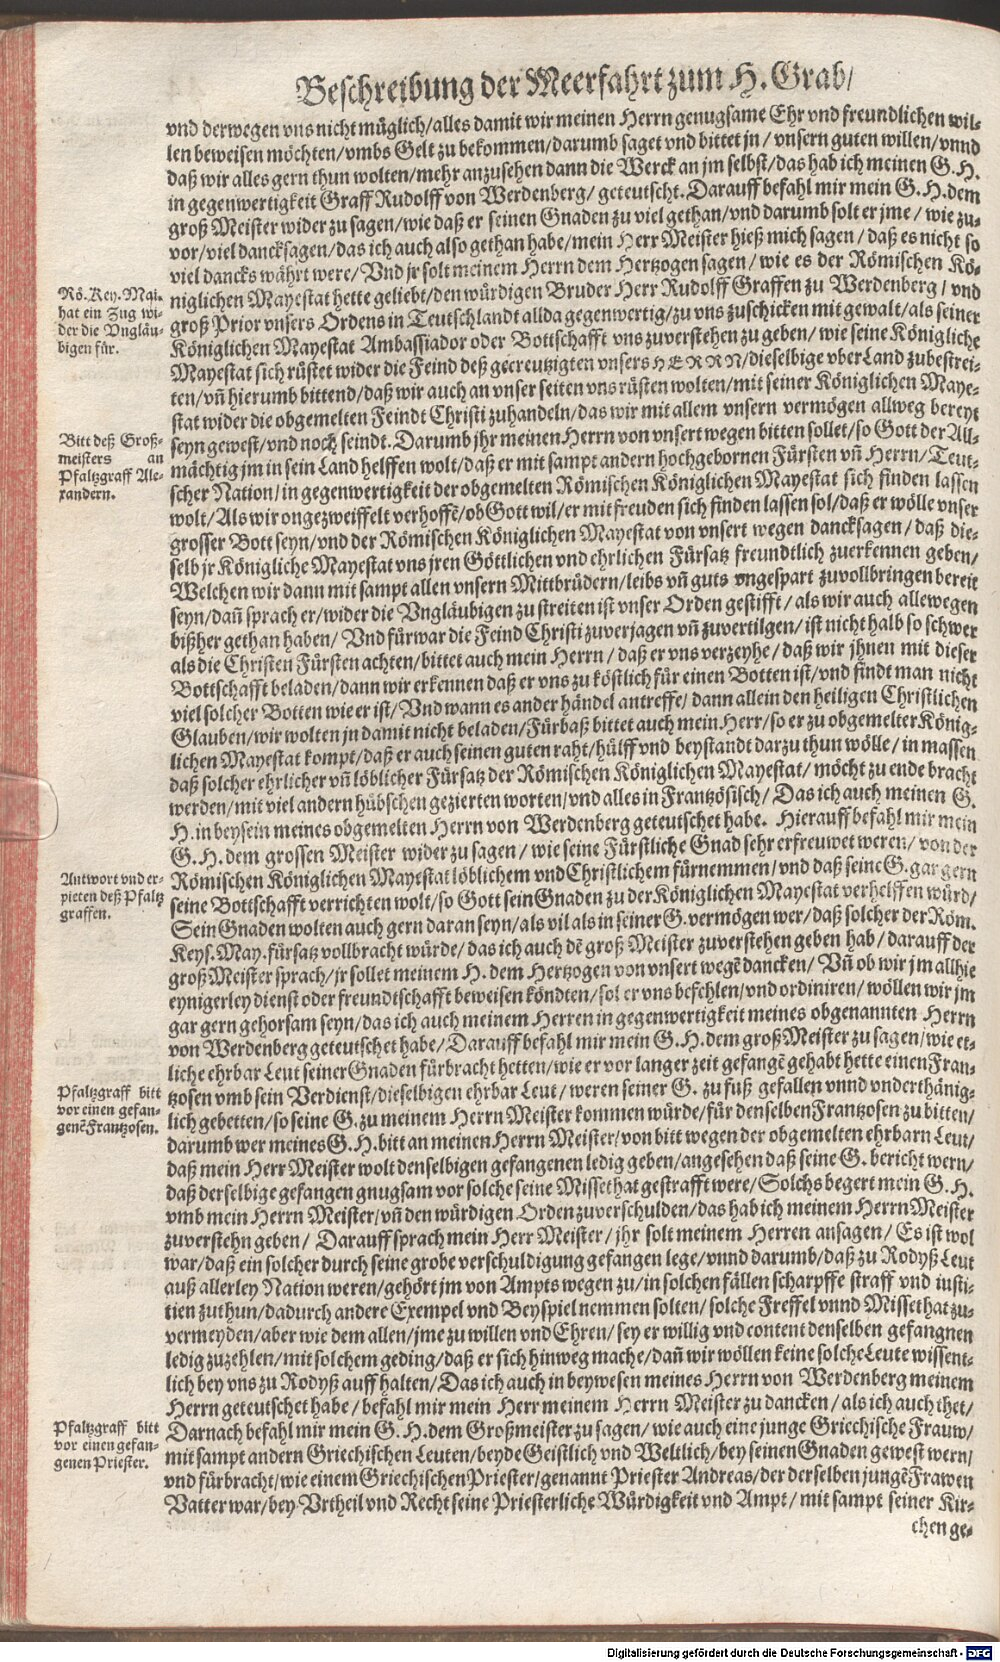 Beschreibung der Meerfahrt zum H. Grab/
vnd derwegen vns nicht müglich/alles damit wir meinen Herrn genugsame Ehr vnd freundlichen wil-
len beweisen möchten/vmbs Gelt zu bekommen/darumb saget vnd bittet jn/ vnsern guten willen/vnnd
daß wir alles gern thun wolten/mehr anzusehen dann die Werck an jm selbst/das hab ich meinen G. H.
in gegenwertigkeit Graff Rudolff von Werdenberg/ geteutscht. Darauff befahl mir mein G. H. dem
groß Meister wider zu sagen/wie daß er seinen Gnaden zu viel gethan/vnd darumb solt er jme/ wie zu-
vor/viel dancksagen/das ich auch also gethan habe/mein Herr Meister hieß mich sagen/ daß es nicht so
viel dancks währt were/Vnd jr solt meinem Herrn dem Hertzogen sagen/ wie es der Römischen Kö-
Rö. Key. Mai.
hat ein Zug wi-
der die Vngläu-
bigen für.
niglichen Mayestat hette geliebt/den würdigen Bruder Herr Rudolff Graffen zu Werdenberg/ vnd
groß Prior vnsers Ordens in Teutschlandt allda gegenwertig/zu vns zuschicken mit gewalt/als seiner
Königlichen Mayestat Ambassiador oder Bottschafft vns zuverstehen zu geben/ wie seine Königliche
Mayestat sich rüstet wider die Feind deß gecreutzigten vnsers HERRN/dieselbige vber Land zubestrei-
ten/vñ hierumb bittend/daß wir auch an vnser seiten vns rüsten wolten/mit seiner Königlichen Maye-
stat wider die obgemelten Feindt Christi zuhandeln/das wir mit allem vnsern vermögen allweg bereyt
Bitt deß Groß-
meisters an
Pfaltzgraff Ale-
xandern.
seyn gewest/vnd noch seindt. Darumb jhr meinen Herrn von vnsert wegen bitten sollet/so Gott der All-
mächtig jm in sein Land helffen wolt/daß er mit sampt andern hochgebornen Fürsten vñ Herrn/Teut-
scher Nation/in gegenwertigkeit der obgemelten Römischen Königlichen Mayestat sich finden lassen
wolt/Als wir ongezweiffelt verhoffẽ/ob Gott wil/er mit freuden sich finden lassen sol/daß er wölle vnser
grosser Bott seyn/vnd der Römischen Königlichen Mayestat von vnsert wegen dancksagen/ daß die-
selb jr Königliche Mayestat vns jren Göttlichen vnd ehrlichen Fürsatz freundtlich zuerkennen geben/
Welchen wir dann mit sampt allen vnsern Mittbrüdern/leibs vñ guts vngespart zuvollbringen bereit
seyn/dañ sprach er/wider die Vngläubigen zu streiten ist vnser Orden gestifft/als wir auch allewegen
bißher gethan haben/ Vnd fürwar die Feind Christi zuverjagen vñ zuvertilgen/ ist nicht halb so schwer
als die Christen Fürsten achten/bittet auch mein Herrn/ daß er vns verzeyhe/ daß wir jhnen mit dieser
Bottschafft beladen/dann wir erkennen daß er vns zu köstlich für einen Botten ist/vnd findt man nicht
viel solcher Botten wie er ist/Vnd wann es ander händel antreffe/dann allein den heiligen Christlichen
Glauben/wir wolten jn damit nicht beladen/Fürbaß bittet auch mein Herr/so er zu obgemelter König-
lichen Mayestat kompt/daß er auch seinen guten raht/hülff vnd beystandt darzu thun wölle/ in massen
daß solcher ehrlicher vñ löblicher Fürsatz der Römischen Königlichen Mayestat/ möcht zu ende bracht
werden/mit viel andern hübschen gezierten worten/vnd alles in Frantzösisch/ Das ich auch meinen G.
H. in beysein meines obgemelten Herrn von Werdenberg geteutschet habe. Hierauff befahl mir mein
G. H. dem grossen Meister wider zu sagen/ wie seine Fürstliche Gnad sehr erfreuwet weren/ von der
Antwort vnd er-
pieten deß Pfaltz
graffen.
Römischen Königlichen Mayestat löblichem vnd Christlichem fürnemmen/vnd daß seine G. gar gern
seine Bottschafft verrichten wolt/so Gott sein Gnaden zu der Königlichen Mayestat verhelffen würd/
Sein Gnaden wolten auch gern daran seyn/als vil als in seiner G. vermögen wer/daß solcher der Röm.
Keys. May. fürsatz vollbracht würde/das ich auch dẽ groß Meister zuverstehen geben hab/darauff der
groß Meister sprach/jr sollet meinem H. dem Hertzogen von vnsert wegẽ dancken/ Vñ ob wir jm allhie
eynigerley dienst oder freundtschafft beweisen köndten/sol er vns befehlen/vnd ordiniren/wöllen wir jm
gar gern gehorsam seyn/das ich auch meinem Herren in gegenwertigkeit meines obgenannten Herrn
von Werdenberg geteutschet habe/Darauff befahl mir mein G. H. dem groß Meister zu sagen/wie et-
liche ehrbar Leut seiner Gnaden fürbracht hetten/wie er vor langer zeit gefangẽ gehabt hette einen Fran-
Pfaltzgraff bitt
vor einen gefan-
genẽ Frantzosen.
tzosen vmb sein Verdienst/dieselbigen ehrbar Leut/ weren seiner G. zu fuß gefallen vnnd vnderthänig-
lich gebetten/so seine G. zu meinem Herrn Meister kommen würde/für denselben Frantzosen zu bitten/
darumb wer meines G. H. bitt an meinen Herrn Meister/von bitt wegen der obgemelten ehrbarn Leut/
daß mein Herr Meister wolt denselbigen gefangenen ledig geben/angesehen daß seine G. bericht wern/
daß derselbige gefangen gnugsam vor solche seine Missethat gestrafft were/Solchs begert mein G. H.
vmb mein Herrn Meister/vñ den würdigen Orden zuverschulden/das hab ich meinem Herrn Meister
zuverstehn geben/ Darauff sprach mein Herr Meister/jhr solt meinem Herren ansagen/ Es ist wol
war/daß ein solcher durch seine grobe verschuldigung gefangen lege/vnnd darumb/daß zu Rodyß Leut
auß allerley Nation weren/gehört jm von Ampts wegen zu/in solchen fällen scharpffe straff vnd iusti-
tien zuthun/dadurch andere Exempel vnd Beyspiel nemmen solten/solche Freffel vnnd Missethat zu-
vermeyden/aber wie dem allen/jme zu willen vnd Ehren/ sey er willig vnd content denselben gefangnen
ledig zuzehlen/mit solchem geding/daß er sich hinweg mache/dañ wir wöllen keine solche Leute wissent-
lich bey vns zu Rodyß auff halten/Das ich auch in beywesen meines Herrn von Werdenberg meinem
Herrn geteutschet habe/ befahl mir mein Herr meinem Herrn Meister zu dancken/als ich auch thet/
Pfaltzgraff bitt
vor einen gefan-
genen Priester.
Darnach befahl mir mein G. H. dem Großmeister zu sagen/ wie auch eine junge Griechische Frauw/
mit sampt andern Griechischen Leuten/beyde Geistlich vnd Weltlich/bey seinen Gnaden gewest wern/
vnd fürbracht/wie einem Griechischen Priester/genannt Priester Andreas/der derselben jungẽ Frawen
Vatter war/bey Vrtheil vnd Recht seine Priesterliche Würdigkeit vnd Ampt/ mit sampt seiner Kir-
chen ge-
Digitalisierung gefördert durch die Deutsche Forschungsgemeinschaft - DFG